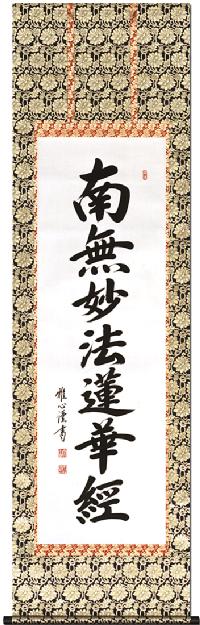 南無妙法蓮華經
雅心渓書